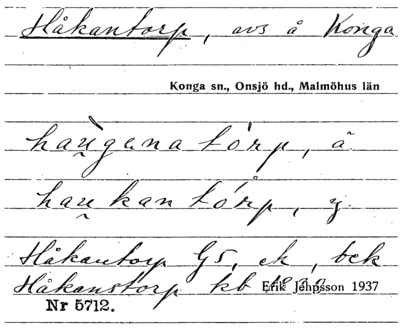 Håkantorp, avs å Konga
Konga sn., Onsjö hd., Malmöhus län
hau̯gana tårp, ä
hau̯kan tǻrp, y
Håkantorp GS, ek, bek
Håkanstorp kb
Erik Jeppsson 1937
Nr 5712.